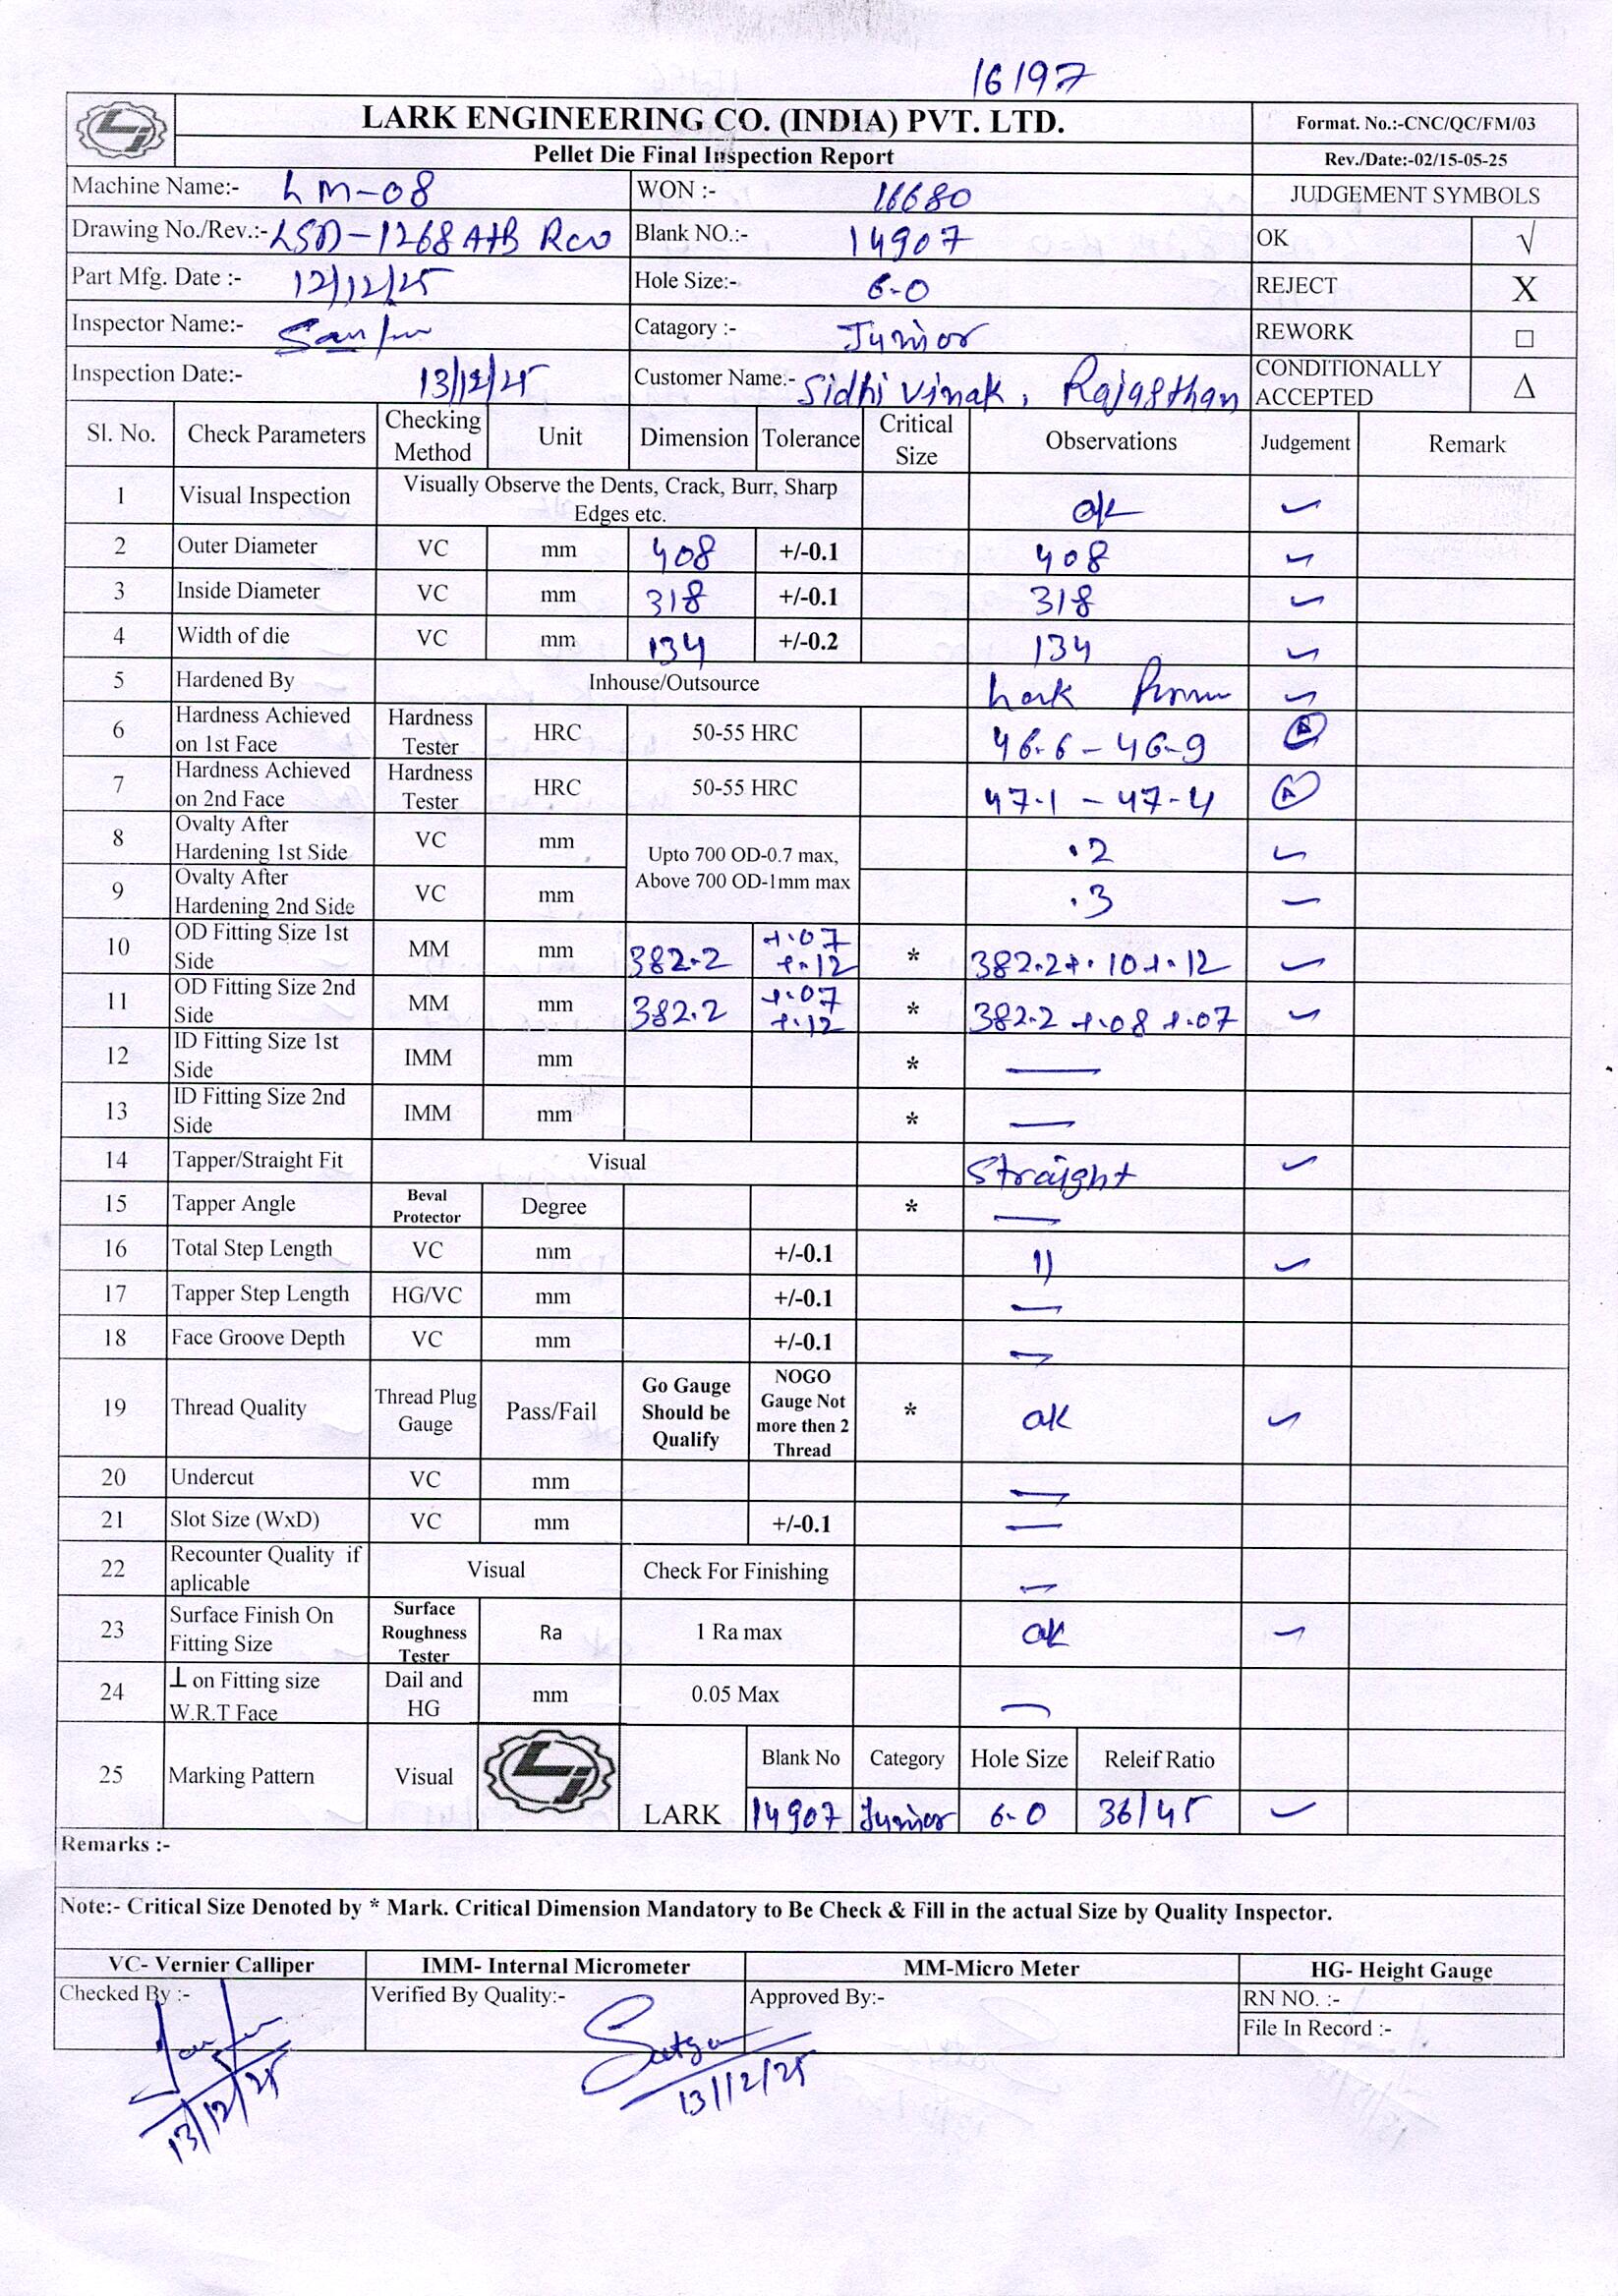 16197
LARK ENGINEERING CO. (INDIA) PVT. LTD.
Format. No.:-CNC/QC/FM/03
Pellet Die Final Inspection Report
Rev./Date:-02/15-05-25
Machine Name:- LM-08 WON :- 16680 JUDGEMENT SYMBOLS
Drawing No./Rev.:- LSD-1268 A+B Rev Blank NO.:- 14907 OK √
Part Mfg. Date :- 12/12/25 Hole Size:- 6.0 REJECT X
Inspector Name:- Catagory :- Junior REWORK □
Inspection Date:- 13/12/25 Customer Name:- Sidhi Vinak, Rajasthan CONDITIONALLY ACCEPTED Δ
Sl. No. Check Parameters Checking Method Unit Dimension Tolerance Critical Size Observations Judgement Remark
1 Visual Inspection Visually Observe the Dents, Crack, Burr, Sharp Edges etc. ok ✓
2 Outer Diameter VC mm 408 +/-0.1 408 ✓
3 Inside Diameter VC mm 318 +/-0.1 318 ✓
4 Width of die VC mm 134 +/-0.2 134 ✓
5 Hardened By Inhouse/Outsource Lark ✓
6 Hardness Achieved on 1st Face Hardness Tester HRC 50-55 HRC 46.6 - 46.9
7 Hardness Achieved on 2nd Face Hardness Tester HRC 50-55 HRC 47.1 - 47.4
8 Ovalty After Hardening 1st Side VC mm Upto 700 OD-0.7 max, Above 700 OD-1mm max .2 ✓
9 Ovalty After Hardening 2nd Side VC mm .3 ✓
10 OD Fitting Size 1st Side MM mm 382.2 +.07 +.12 * 382.2 +.10 +.12 ✓
11 OD Fitting Size 2nd Side MM mm 382.2 +.07 +.12 * 382.2 +.08 +.07 ✓
12 ID Fitting Size 1st Side IMM mm * —
13 ID Fitting Size 2nd Side IMM mm * —
14 Tapper/Straight Fit Visual Straight ✓
15 Tapper Angle Beval Protector Degree * —
16 Total Step Length VC mm +/-0.1 11 ✓
17 Tapper Step Length HG/VC mm +/-0.1 —
18 Face Groove Depth VC mm +/-0.1 —
19 Thread Quality Thread Plug Gauge Pass/Fail Go Gauge Should be Qualify NOGO Gauge Not more then 2 Thread * ok ✓
20 Undercut VC mm —
21 Slot Size (WxD) VC mm +/-0.1 —
22 Recounter Quality if aplicable Visual Check For Finishing —
23 Surface Finish On Fitting Size Surface Roughness Tester Ra 1 Ra max ok ✓
24 ⊥ on Fitting size W.R.T Face Dail and HG mm 0.05 Max —
25 Marking Pattern Visual LARK Blank No Category Hole Size Releif Ratio
14907 Junior 6.0 36/45 ✓
Remarks :-
Note:- Critical Size Denoted by * Mark. Critical Dimension Mandatory to Be Check & Fill in the actual Size by Quality Inspector.
VC- Vernier Calliper IMM- Internal Micrometer MM-Micro Meter HG- Height Gauge
Checked By :- Verified By Quality:- Approved By:- RN NO. :-
File In Record :-
13/12/25 13/12/25